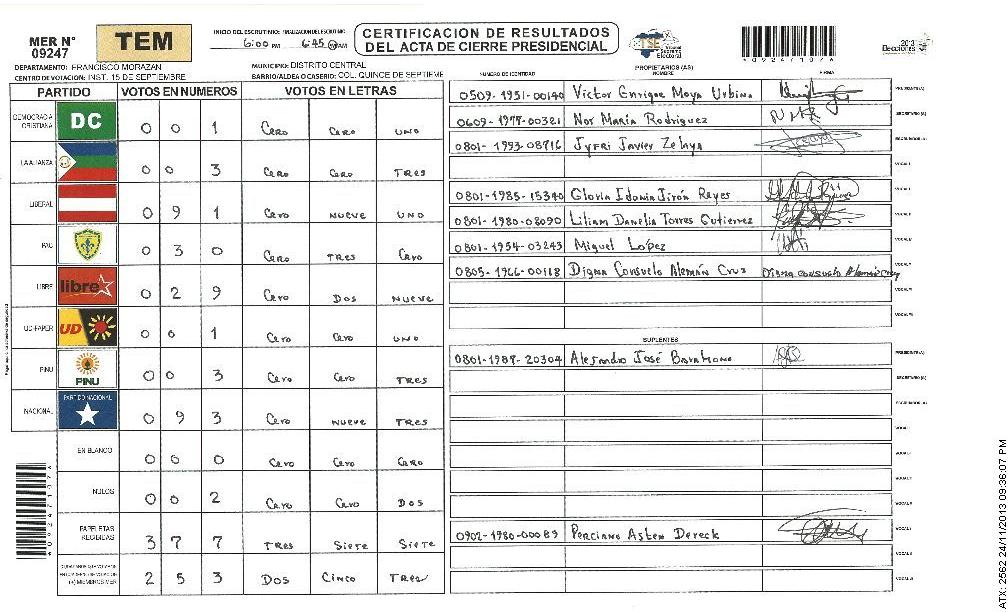 MER N°
09247
TEM
INICIO DEL ESCRUTINIO: FINALIZACION DEL ESCRUTINIO
6:00 PM 6:45 AM
CERTIFICACION DE RESULTADOS
DEL ACTA DE CIERRE PRESIDENCIAL
TSE Tribunal Supremo Electoral
2013
Elecciones
DEPARTAMENTO: FRANCISCO MORAZAN
MUNICIPIO: DISTRITO CENTRAL
CENTRO DE VOTACION: INST. 15 DE SEPTIEMBRE
BARRIO/ALDEA O CASERIO: COL. QUINCE DE SEPTIEME
PROPIETARIOS (AS)
NUMERO DE IDENTIDAD NOMBRE FIRMA
PARTIDO VOTOS EN NUMEROS VOTOS EN LETRAS
DEMOCRACIA CRISTIANA DC 0 0 1 Cero Cero UNO
LA ALIANZA 0 0 3 Cero Cero TRES
LIBERAL 0 9 1 Cero NUEVE UNO
PAC 0 3 0 Cero TRES Cero
LIBRE libre 0 2 9 Cero DOS NUEVE
UD-FAPER UD 0 0 1 Cero Cero UNO
PINU PINU 0 0 3 Cero Cero TRES
NACIONAL PARTIDO NACIONAL 0 9 3 Cero NUEVE TRES
EN BLANCO 0 0 0 Cero Cero CERO
NULOS 0 0 2 Cero Cero DOS
PAPELETAS RECIBIDAS 3 7 7 TRES SIETE SIETE
(+) MIEMBROS MER 2 5 3 DOS CINCO TRES
0509-1951-00140 Victor Enrique Moya Urbina PRESIDENTE(A)
0609-1977-00321 Nor María Rodriguez SECRETARIO (A)
0801-1993-08716 Jyfri Javier Zelaya ESCRUTADOR (A)
VOCAL I
0801-1985-15340 Gloria Idonia Jirón Reyes
0801-1980-08090 Liliam Danelia Torres Gutierrez
0801-1954-03243 Miguel López
0805-1966-00118 Digna Consuelo Alemán Cruz Digna consuelo Aleman cruz
SUPLENTES
0801-1987-20304 Alejandro José Barahona PRESIDENTE(A)
SECRETARIO (A)
ESCRUTADOR (A)
0902-1980-00089 Perciano Asten Dereck
A09247107A
ATX: 2562 24/11/2013 09:36:07 PM